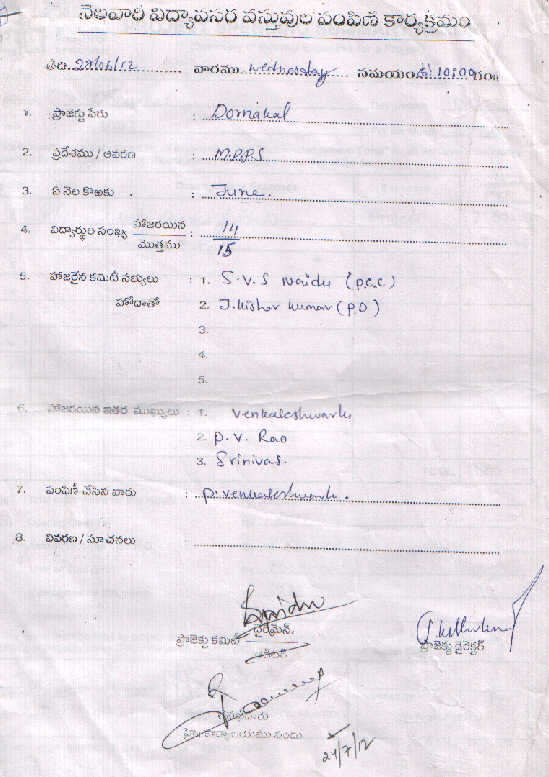 నెలవారి విద్యావసర వస్తువుల పంపిణి కార్యక్రమం
తేది. 27/06/12 వారము Wednesday సమయం 10:00 గం॥
1. ప్రాజెక్టు పేరు : Dornakal
2. ప్రదేశము / ఆవరణ : M.P.P.S
3. ఏ నెల కొఱకు : June.
4. విద్యార్థుల సంఖ్య హాజరయిన : 14
మొత్తము 15
5. హాజరైన కమిటీ సభ్యులు : 1. S.V.S Naidu (P.C.C)
హోదాతో 2. J. Kishor Kumar (P.D)
3.
4.
5.
6. హాజరయిన ఇతర ముఖ్యులు : 1. Venkateshwarlu
2. P. V. Rao
3. Srinivas.
7. పంపిణీ చేసిన వారు : P. Venkateshwarlu.
8. వివరణ / సూచనలు :
ప్రాజెక్టు కమిటీ చైర్మెన్
ప్రాజెక్టు డైరెక్టర్
21/7/12